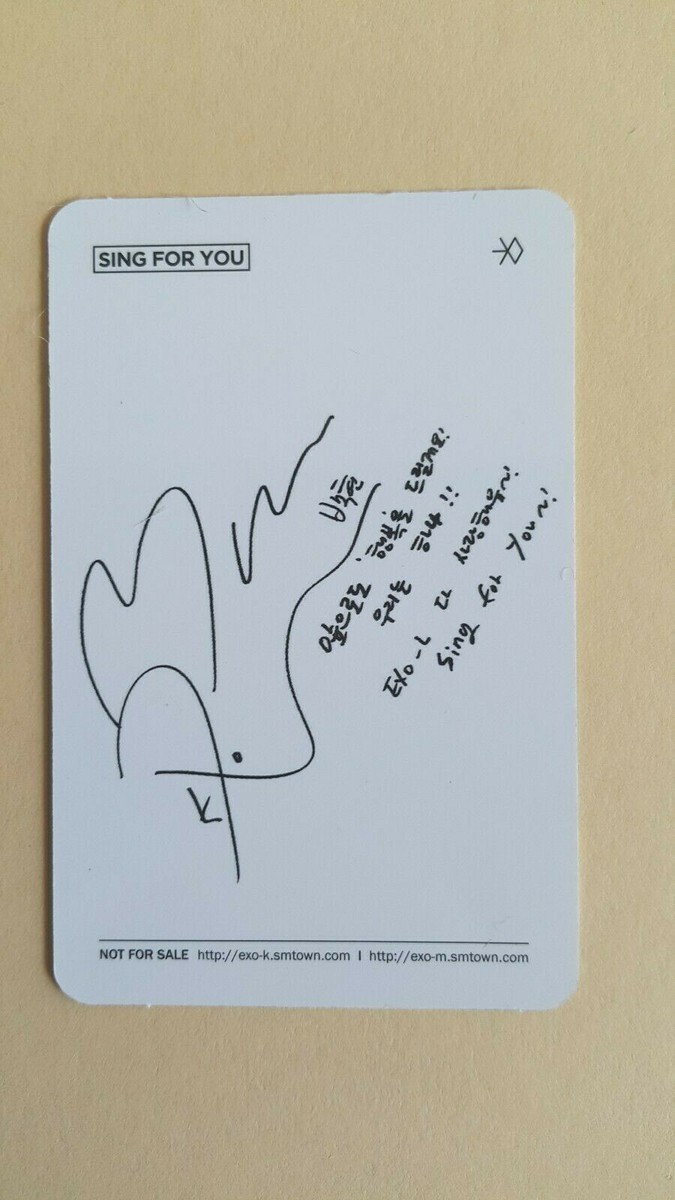 SING FOR YOU
백현
앞으로도 행복을 드릴게요!
우리는 하나!!
EXO-L 다 사랑해용~!
Sing for You~!
K
NOT FOR SALE http://exo-k.smtown.com I http://exo-m.smtown.com